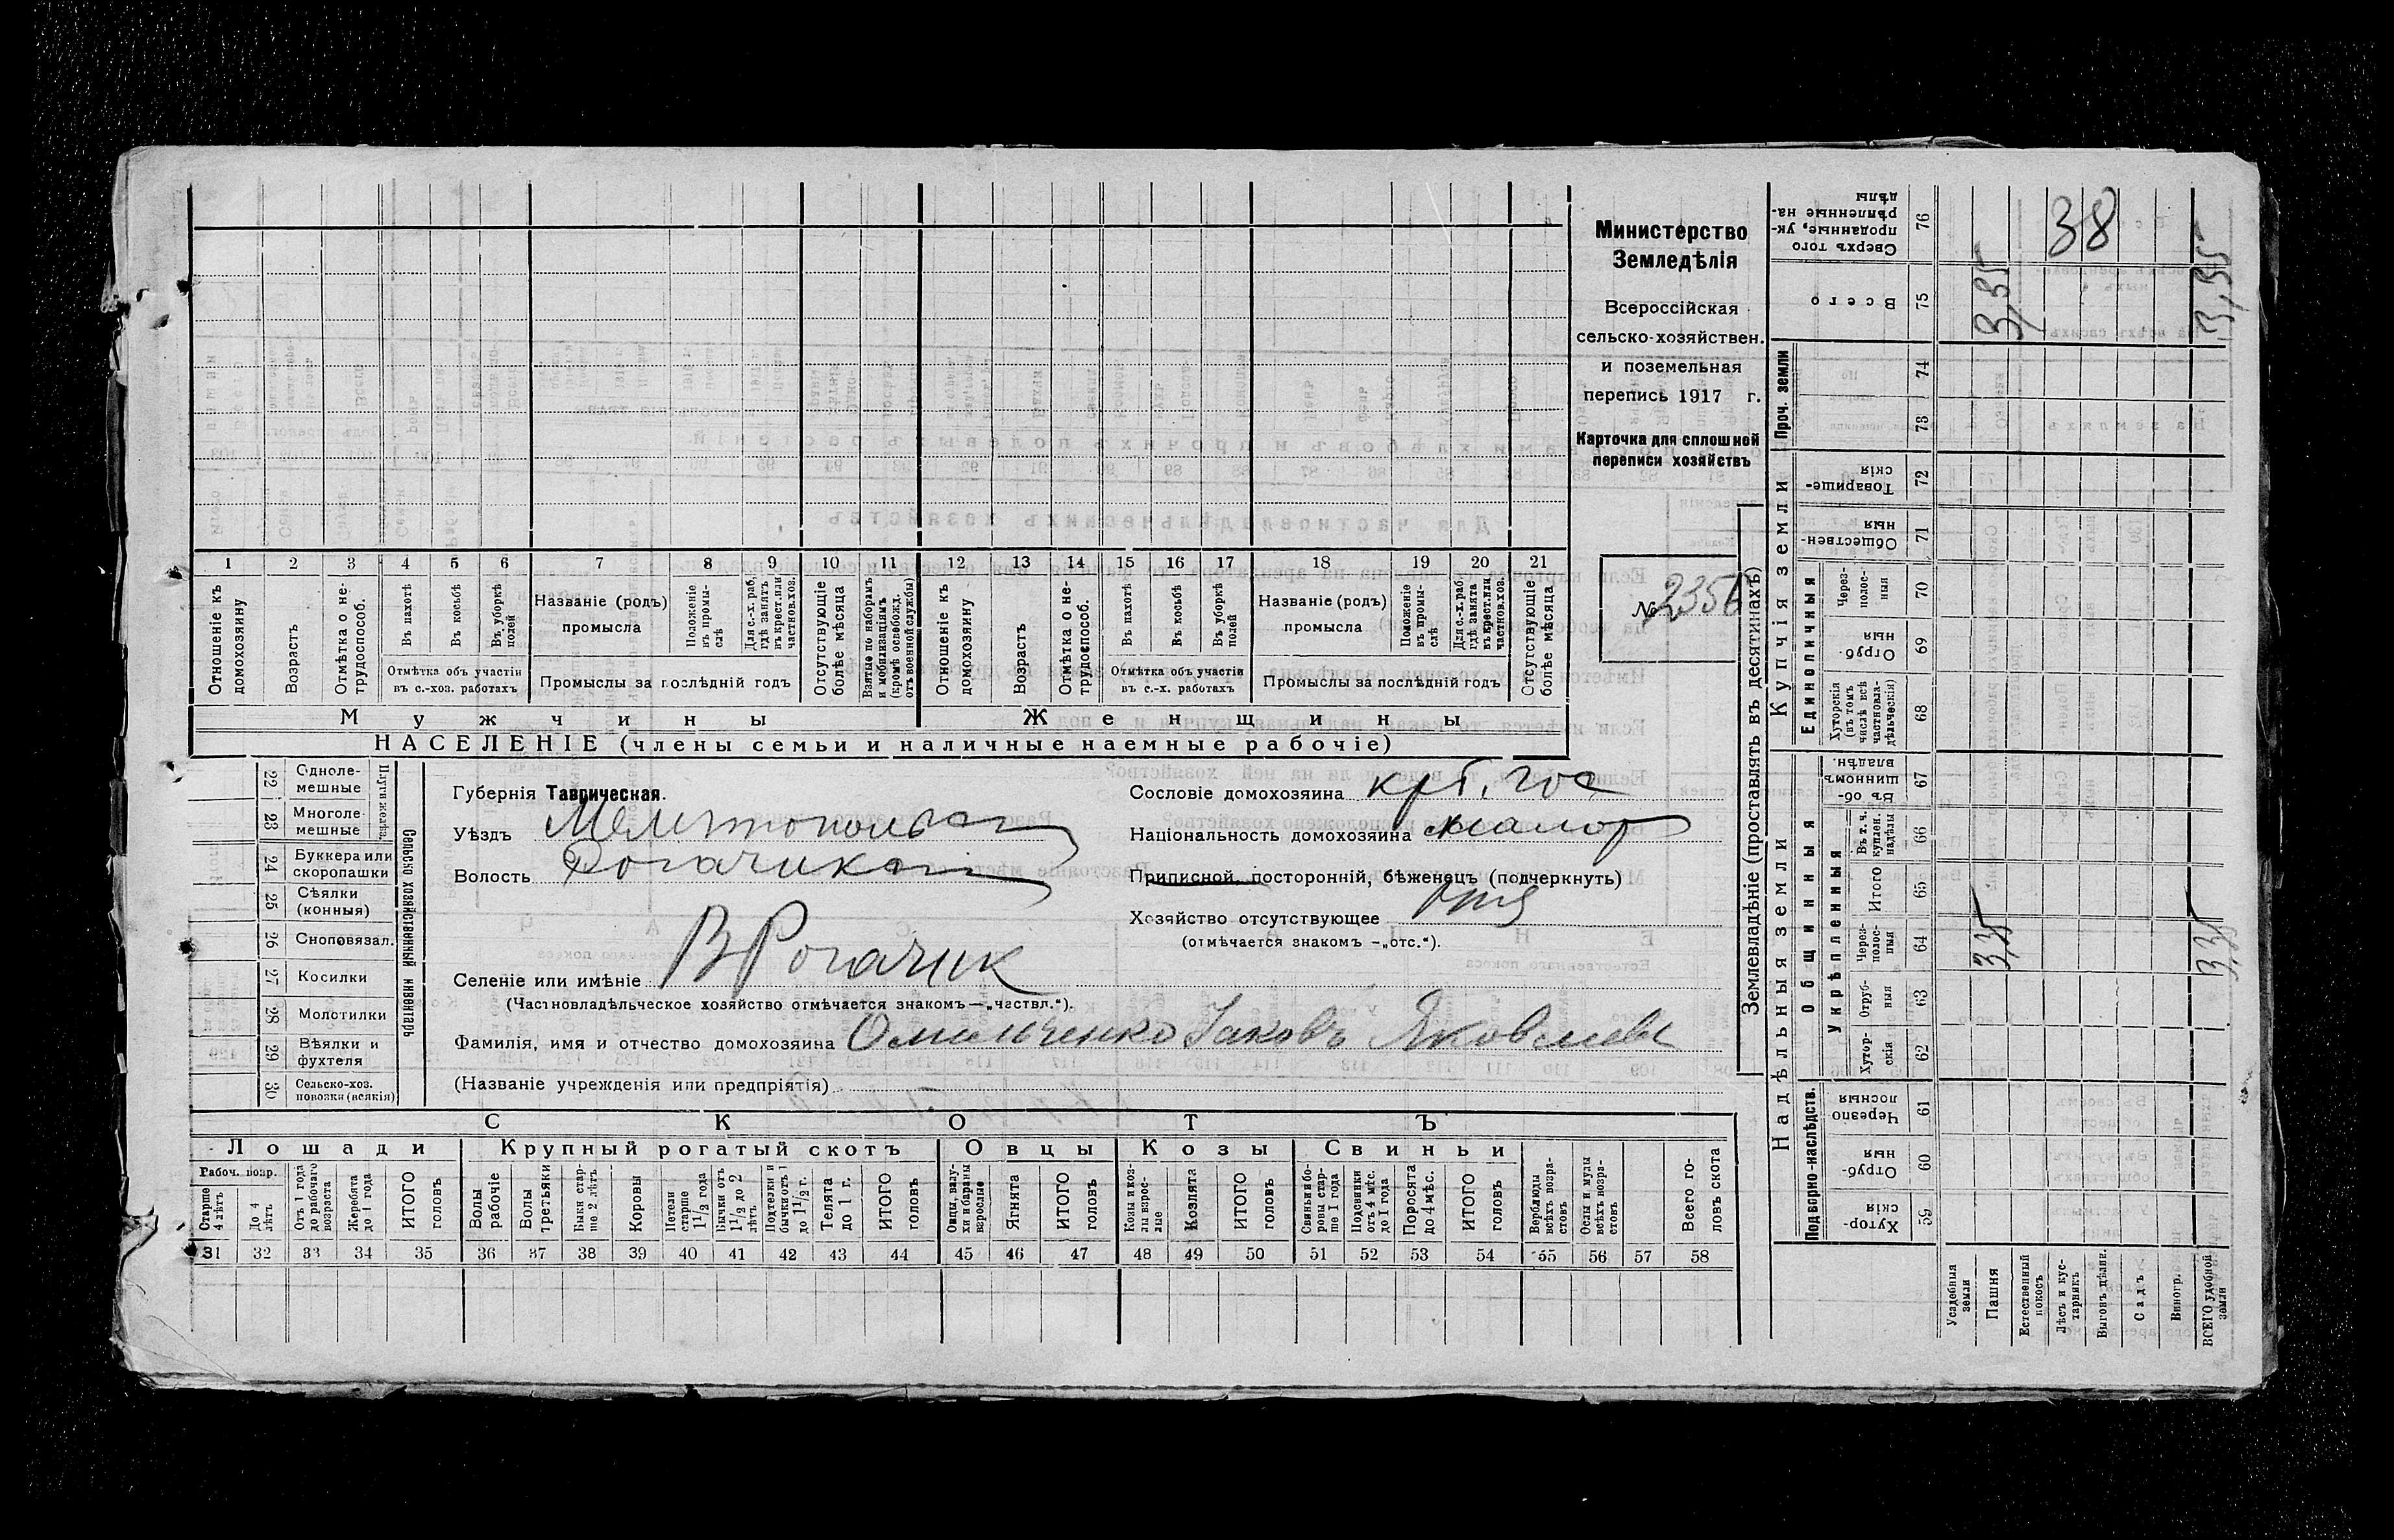 Министерство
Земледѣлія
Всероссійская
сельско-хозяйствен.
и поземельная
перепись 1917 г.
Карточка для сплошной
переписи хозяйствъ
№
1 2 3 4 5 6 7 8 9 10 11 12 13 14 15 16 17 18 19 20 21
Отношеніе къ домохозяину
Возрастъ
Отмѣтка о не-трудоспособ.
Въ пахотѣ
Въ косьбѣ
Въ уборкѣ полей
Отмѣтка объ участіи
въ с.-хоз. работахъ
Названіе (родъ)
промысла
Положеніе въ промы-слѣ
Для с.-х. раб. гдѣ занятъ въ крест. или частнов. хоз.
Промыслы за послѣдній годъ
Отсутствующіе болѣе мѣсяца
Взятые по наборамъ и мобилизаціямъ (кромѣ освобожд. отъ военной службы)
Отношеніе къ домохозяину
Возрастъ
Отмѣтка о не-трудоспособ.
Въ пахотѣ
Въ косьбѣ
Въ уборкѣ полей
Отмѣтка объ участіи
въ с.-х. работахъ
Названіе (родъ)
промысла
Положеніе въ промы-слѣ
Для с.-х. раб. гдѣ занята въ крест. или частнов. хоз.
Промыслы за послѣдній годъ
Отсутствующіе болѣе мѣсяца
Мужчины
Женщины
НАСЕЛЕНІЕ (члены семьи и наличные наемные рабочіе)
22 Одноле-мешные
23 Многоле-мешные
Плуги желѣз.
24 Буккера или скоропашки
25 Сѣялки (конныя)
26 Сноповязал.
27 Косилки
28 Молотилки
29 Вѣялки и фухтеля
30 Сельско-хоз. повозки (всякія)
Сельско хозяйственный инвентарь
Губернія Таврическая.
Уѣздъ
Волость
Селеніе или имѣніе В Рогачик
(Частновладѣльческое хозяйство отмѣчается знакомъ—„частвл.“).
Фамилія, имя и отчество домохозяина Омельченко Іаковъ Яковлевъ
(Названіе учрежденія или предпріятія)
Сословіе домохозяина
Національность домохозяина малор
Приписной, посторонній, бѣженецъ (подчеркнуть)
Хозяйство отсутствующее
(отмѣчается знакомъ -„отс.“).
СКОТЪ
Лошади
Крупный рогатый скотъ
Овцы
Козы
Свиньи
Рабоч. возр.
Старше 4 лѣтъ
До 4 лѣтъ
Отъ 1 года до рабочаго возраста
Жеребята до 1 года
ИТОГО головъ
Волы рабочіе
Волы третьяки
Быки стар-ше 2 лѣтъ
Коровы
Нетели старше 1 1/2 года
Бычки отъ 1 1/2 до 2 лѣтъ
Подтелки и бычки отъ 1 до 1 1/2 г.
Телята до 1 г.
ИТОГО головъ
Овцы, валу-хи и бараны взрослые
Ягнята
ИТОГО головъ
Козы и коз-лы взрос-лые
Козлята
ИТОГО головъ
Свиньи и бо-ровы стар-ше 1 года
Подсвинки отъ 4 мѣс. до 1 года
Поросята до 4 мѣс.
ИТОГО головъ
Верблюды всѣхъ возра-стовъ
Ослы и мулы всѣхъ возра-стовъ
Всего го-ловъ скота
31 32 33 34 35 36 37 38 39 40 41 42 43 44 45 46 47 48 49 50 51 52 53 54 55 56 57 58
Землевладѣніе (проставлять въ десятинахъ)
Купчія земли
Надѣльныя земли
Проч. земли
Единоличныя
Общинныя
Укрѣпленныя
Подворно-наслѣдств.
76 Сверхъ того проданные, ук-рѣпленные на-дѣлы
75 Всего
74
73
72 Товарище-скія
71 Обществен-ныя
70 Через-полос-ныя
69 Отруб-ныя
68 Хуторскія (въ томъ числѣ всѣ частновла-дѣльческія)
67 Въ об-щинномъ владѣн.
66 Въ т. ч. куплен. надѣлы
65 Итого
64 Через-полос-ныя
63 Отруб-ныя
62 Хутор-скія
61 Черезпо лосныя
60 Отруб-ныя
59 Хутор-скія
Усадебныя земли
Пашня
Естественный покосъ
Лѣсъ и кус-тарникъ
Выгонъ цѣлин.
Садъ
Виногр.
ВСЕГО удобной земли
38
3,35
3,35
3,35
3,35